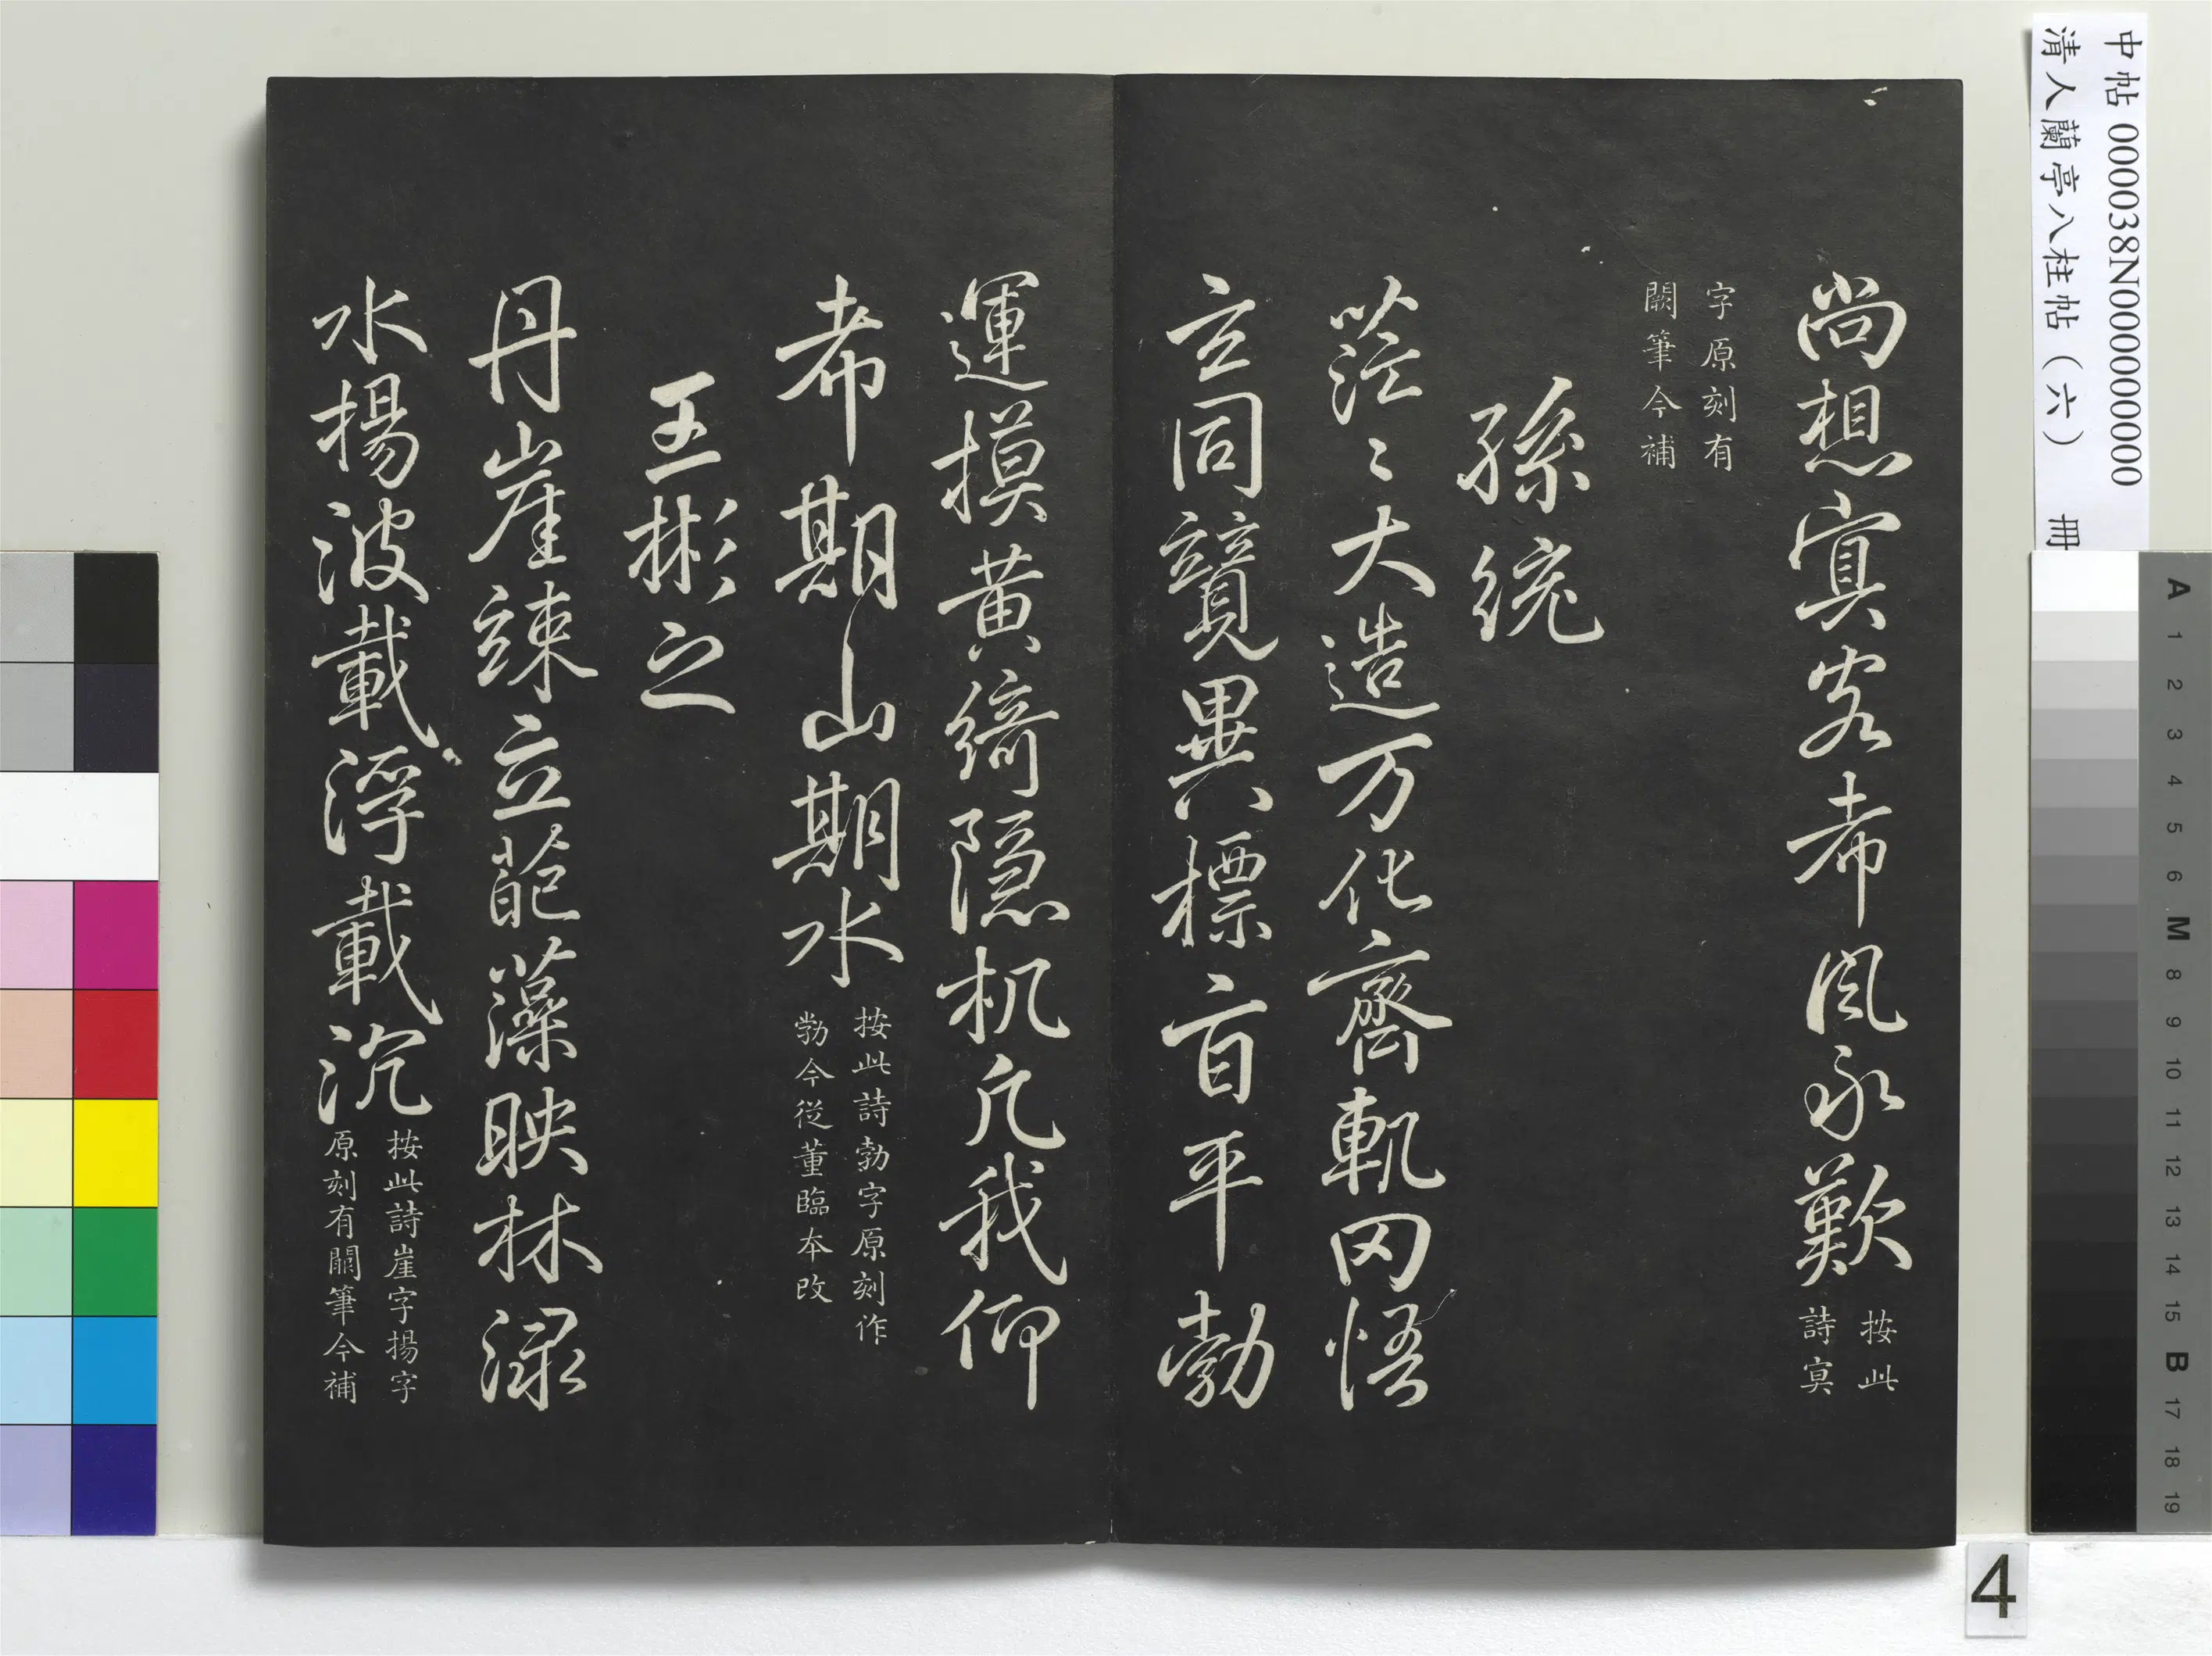 尚想寘客希風永歎
按此
詩寘
字原刻有
闕筆今補
孫統
茫〻大造万化齊軌罔悟
玄同競異標旨平勃
運摸黄綺隠机凡我仰
希期山期水
按此詩勃字原刻作
勃今從董臨本改
王彬之
丹崖竦立葩藻映林渌
水揚波載浮載沉
按此詩崖字揚字
原刻有闕筆今補
中帖 000038N000000000
清人蘭亭八柱帖（六） 冊
A 1 2 3 4 5 6 M 8 9 10 11 12 13 14 15 B 17 18 19
4